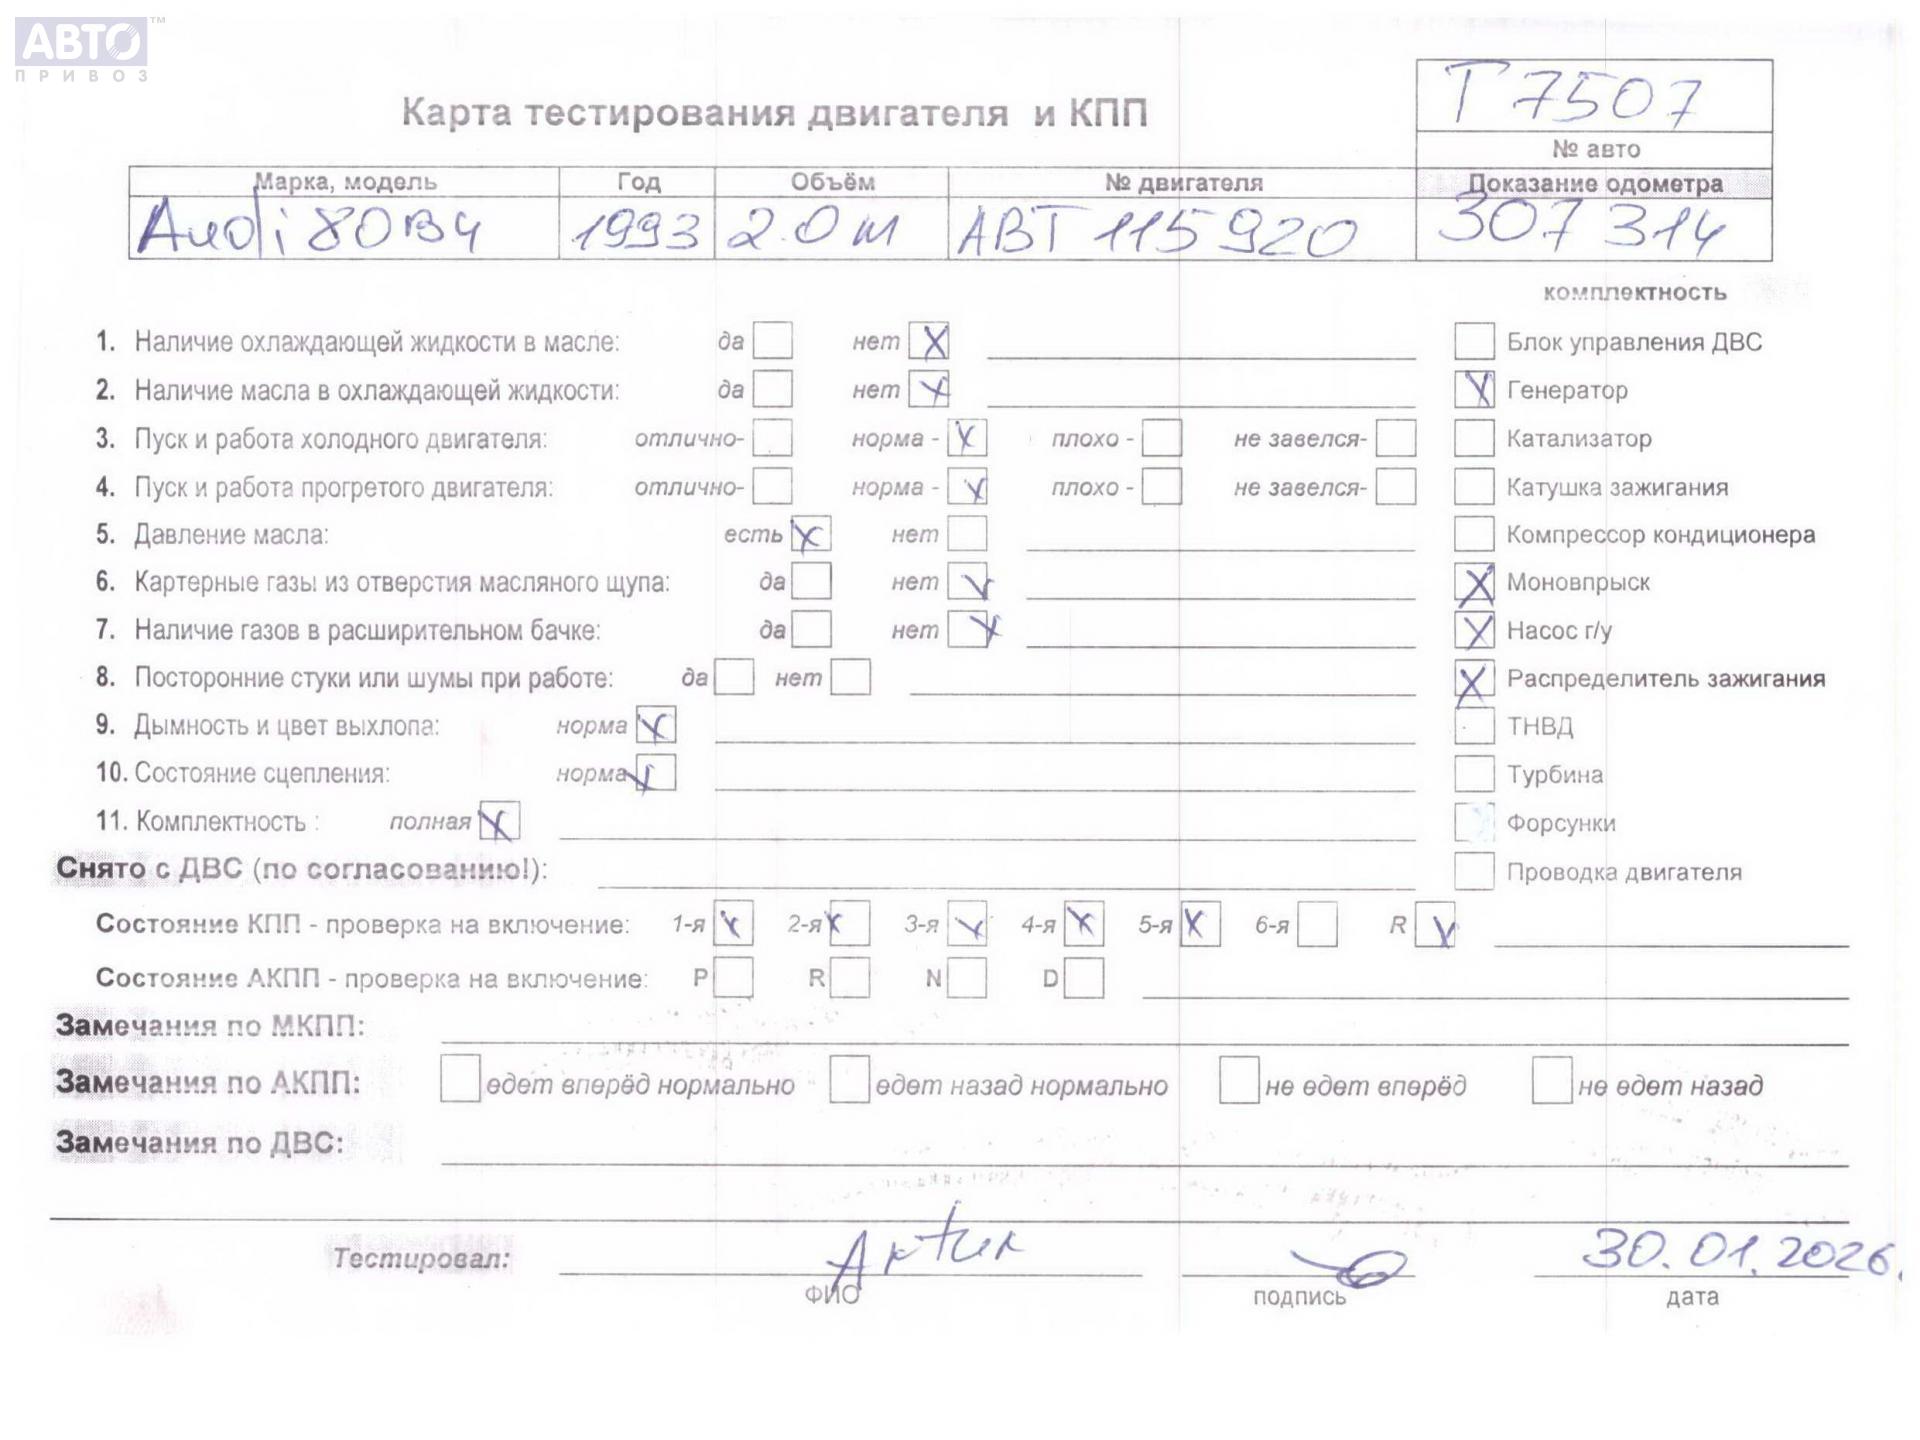 АВТО™
ПРИВОЗ
Карта тестирования двигателя и КПП
T 7507
№ авто
Марка, модель Год Объём № двигателя Доказание одометра
Audi 80B4 1993 2.0 м ABT 115920 307 314
комплектность
1. Наличие охлаждающей жидкости в масле: да нет X Блок управления ДВС
2. Наличие масла в охлаждающей жидкости: да нет X X Генератор
3. Пуск и работа холодного двигателя: отлично- норма - X плохо - не завелся- Катализатор
4. Пуск и работа прогретого двигателя: отлично- норма - X плохо - не завелся- Катушка зажигания
5. Давление масла: есть X нет Компрессор кондиционера
6. Картерные газы из отверстия масляного щупа: да нет X X Моновпрыск
7. Наличие газов в расширительном бачке: да нет X X Насос г/у
8. Посторонние стуки или шумы при работе: да нет X Распределитель зажигания
9. Дымность и цвет выхлопа: норма X ТНВД
10. Состояние сцепления: норма X Турбина
11. Комплектность : полная X Форсунки
Снято с ДВС (по согласованию!): Проводка двигателя
Состояние КПП - проверка на включение: 1-я X 2-я X 3-я X 4-я X 5-я X 6-я R X
Состояние АКПП - проверка на включение: P R N D
Замечания по МКПП:
Замечания по АКПП: едет вперёд нормально едет назад нормально не едет вперёд не едет назад
Замечания по ДВС:
Тестировал: Artur 30.01.2026.
ФИО подпись дата